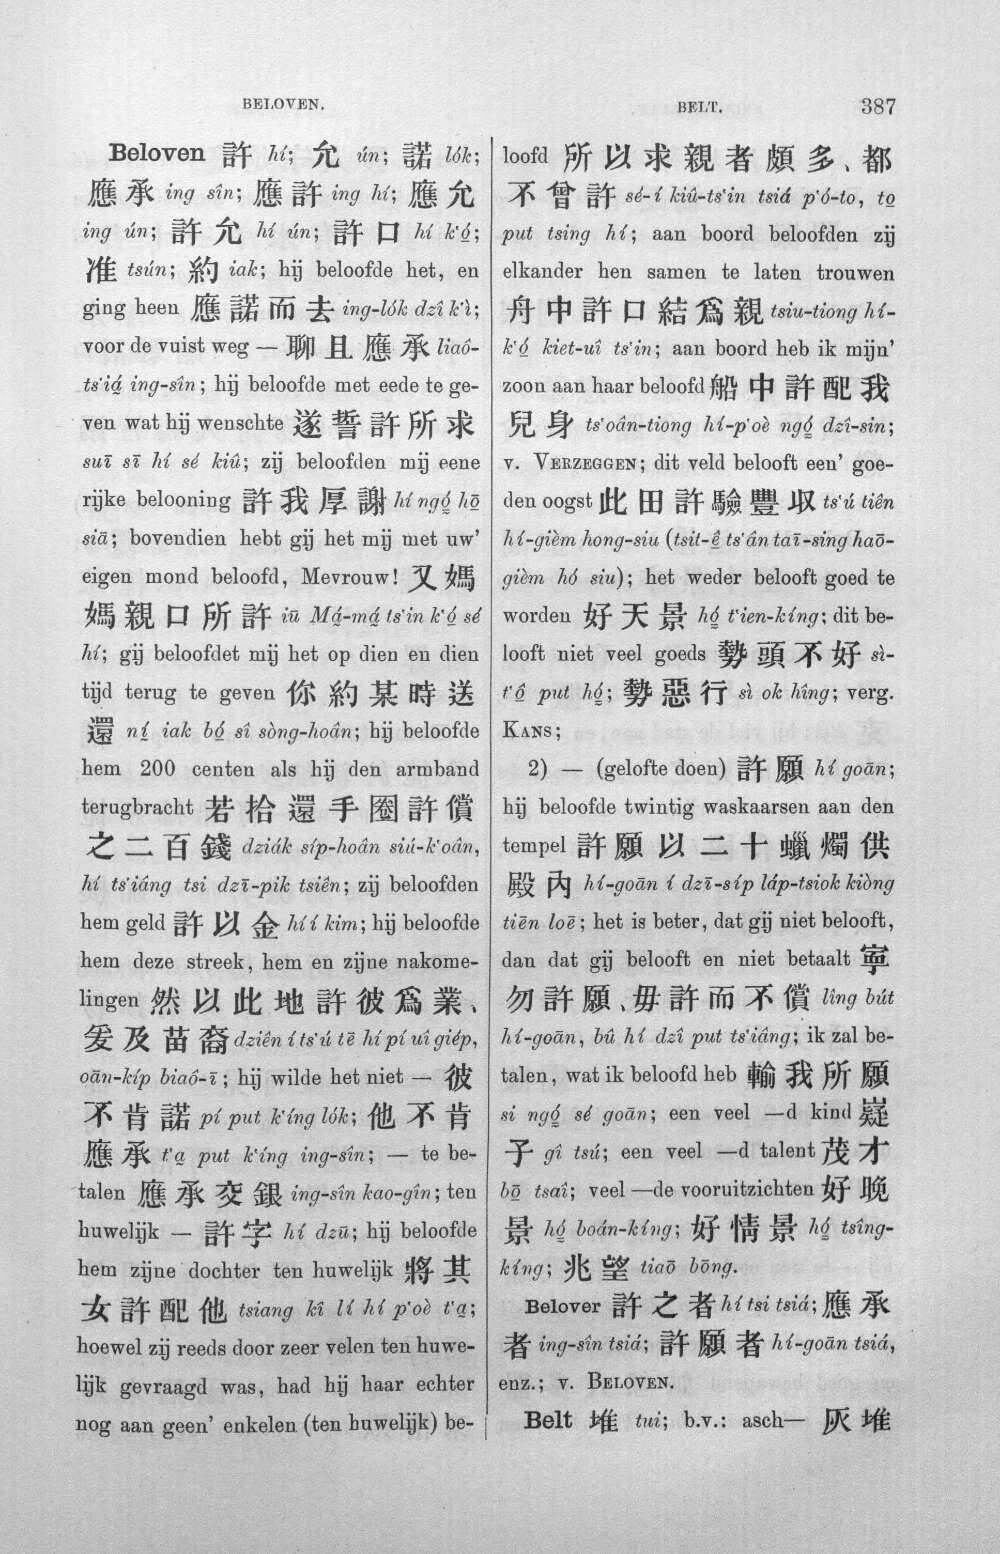 BELOVEN.
Beloven 許 hí; 允 ún; 諾 lók;
應承 ing sîn; 應許 ing hí; 應允
ing ún; 許允 hí ún; 許口 hí k‘ó̤;
准 tsún; 約 iak; hij beloofde het, en
ging heen 應諾而去 ing-lók dzî k‘ì;
voor de vuist weg — 聊且應承 liaô-
ts‘iá̤ ing-sîn; hij beloofde met eede te ge-
ven wat hij wenschte 遂誓許所求
suī sī hí sé kiû; zij beloofden mij eene
rijke belooning 許我厚謝 hí ngó̤ hō
siā; bovendien hebt gij het mij met uw’
eigen mond beloofd, Mevrouw! 又媽
媽親口所許 iū Má̤-má̤ ts‘in k‘ó̤ sé
hí; gij beloofdet mij het op dien en dien
tijd terug te geven 你約某時送
還 ní̤ iak bó̤ sî sòng-hoân; hij beloofde
hem 200 centen als hij den armband
terugbracht 若拾還手圈許償
之二百錢 dziák síp-hoân siú-k‘oân,
hí ts‘iâng tsi dzī-pik tsiên; zij beloofden
hem geld 許以金 hí í kim; hij beloofde
hem deze streek, hem en zijne nakome-
lingen 然以此地許彼爲業、
爰及苗裔 dziên í ts‘ú tē hí pí uî giép,
oān-kíp biaô-ī; hij wilde het niet — 彼
不肯諾 pí put k‘íng lók; 他不肯
應承 t‘a̤ put k‘íng ing-sîn; — te be-
talen 應承交銀 ing-sîn kao-gîn; ten
huwelijk — 許字 hí dzū; hij beloofde
hem zijne dochter ten huwelijk 將其
女許配他 tsiang kî lí hí p‘oè t‘a̤;
hoewel zij reeds door zeer velen ten huwe-
lijk gevraagd was, had hij haar echter
nog aan geen’ enkelen (ten huwelijk) be-
BELT.
387
loofd 所以求親者頗多、都
不曾許 sé-í kiû-ts‘in tsiá p‘ó-to, to̤
put tsing hí; aan boord beloofden zij
elkander hen samen te laten trouwen
舟中許口結爲親 tsiu-tiong hí-
k‘ó̤ kiet-uî ts‘in; aan boord heb ik mijn’
zoon aan haar beloofd 船中許配我
兒身 ts‘oân-tiong hí-p‘oè ngó̤ dzî-sin;
v. VERZEGGEN; dit veld belooft een’ goe-
den oogst 此田許驗豐収 ts‘ú tiên
hí-gièm hong-siu (tsit-ê̤ ts‘án taī-sing haō-
gièm hó siu); het weder belooft goed te
worden 好天景 hó̤ t‘ien-kíng; dit be-
looft niet veel goeds 勢頭不好 sì-
t‘ô̤ put hó̤; 勢惡行 sì ok hîng; verg.
KANS;
2) — (gelofte doen) 許願 hí goān;
hij beloofde twintig waskaarsen aan den
tempel 許願以二十蠟燭供
殿內 hí-goān í dzī-síp láp-tsiok kiòng
tiēn loē; het is beter, dat gij niet belooft,
dan dat gij belooft en niet betaalt 寧
勿許願、毋許而不償 lîng bút
hí-goān, bû hí dzî put ts‘iâng; ik zal be-
talen, wat ik beloofd heb 輸我所願
si ngó̤ sé goān; een veel —d kind 嶷
子 gî tsú; een veel —d talent 茂才
bō̤ tsaî; veel —de vooruitzichten 好晚
景 hó̤ boán-kíng; 好情景 hó̤ tsîng-
kíng; 兆望 tiaō bōng.
Belover 許之者 hí tsi tsiá; 應承
者 ing-sîn tsiá; 許願者 hí-goān tsiá,
enz.; v. BELOVEN.
Belt 堆 tui; b.v.: asch— 灰堆